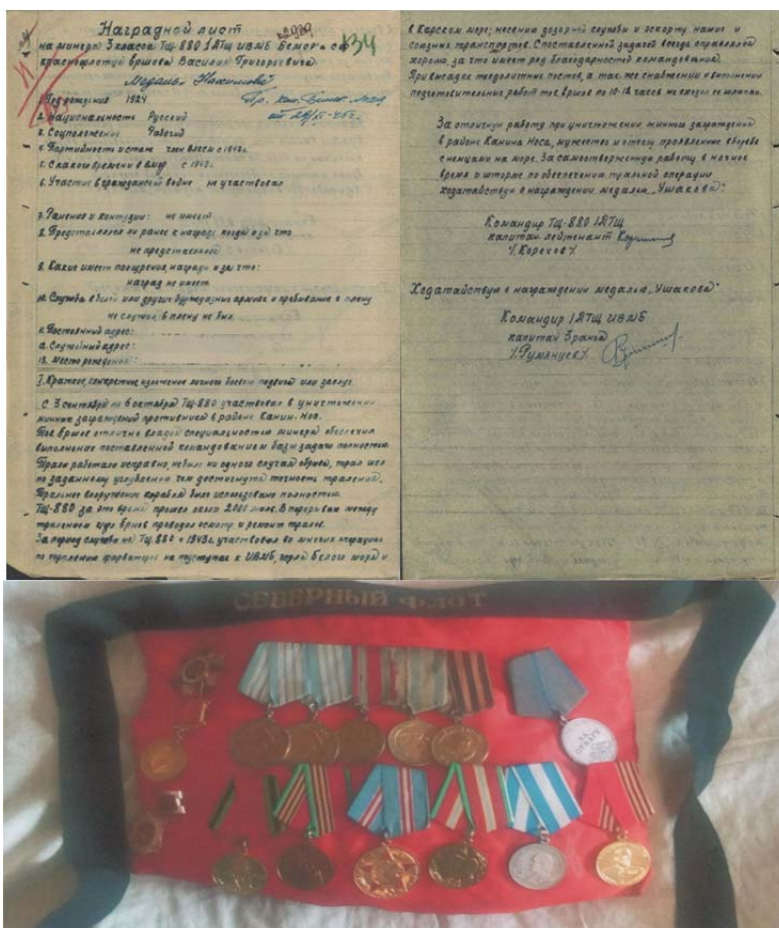 Наградной лист
134
на минера 3 класса ТЩ-880 1ДТЩ ИВМБ
краснофлотца Ершова Василия Григорьевича
Медалью Нахимова
1. Год рождения 1924
2. Национальность Русский
3. Соцположение Рабочий
4. Партийность и стаж член ВЛКСМ с 1942г.
5. С какого времени в ВМФ с 1942г.
6. Участие в гражданской войне не участвовал
7. Ранение и контузии: не имеет
8. Представлялся ли ранее к награде, когда и за что
не представлялся
9. Какие имеет поощрения, награды и за что:
наград не имеет
10. Служба в белой или других буржуазных армиях и пребывание в плену
не служил в плену не был
11. Постоянный адрес:
12. Служебный адрес:
13. Место рождения:
I. Краткое, конкретное изложение личного боевого подвига или заслуг.
С 3 сентября по 6 октября ТЩ-880 участвовал в уничтожении
минных заграждений противника в районе Канин-Нос.
Тов Ершов отлично владея специальностью минера обеспечил
выполнение поставленной командованием базы задачи полностью.
Тралы работали исправно, не было ни одного случая обрыва, трал шел
по заданному углублению чем достигнута точность траления.
Тральное вооружение корабля было использовано полностью.
ТЩ-880 за это время прошел около 2000 миль. В перерывах между
тралением Ершов проводил осмотр и ремонт тралов.
За период службы на ТЩ-880 с 1943г. участвовал во многих операциях
по тралению фарватеров на подступах к ИВМБ, горла Белого моря и
в Карском море; несению дозорной службы и эскорту наших и
союзных транспортов. С поставленной задачей всегда справлялся
хорошо, за что имеет ряд благодарностей командования.
При высадке теодолитных постов, а так же снабжении и выполнении
подготовительных работ тов Ершов по 10-12 часов не сходил со шлюпки.
За отличную работу при уничтожении минного заграждения
в районе Канина Носа, мужество и отвагу проявленные в борьбе
с немцами на море. За самоотверженную работу в ночное
время и шторме по обеспечению тральной операции
ходатайствую о награждении медалью „Ушакова"
Командир ТЩ-880 1ДТЩ
капитан-лейтенант
Ходатайствую о награждении медалью „Ушакова"
Командир 1ДТЩ ИВМБ
капитан 3 ранга
/. Румянцев /.
СЕВЕРНЫЙ ФЛОТ
ЗА ОТВАГУ